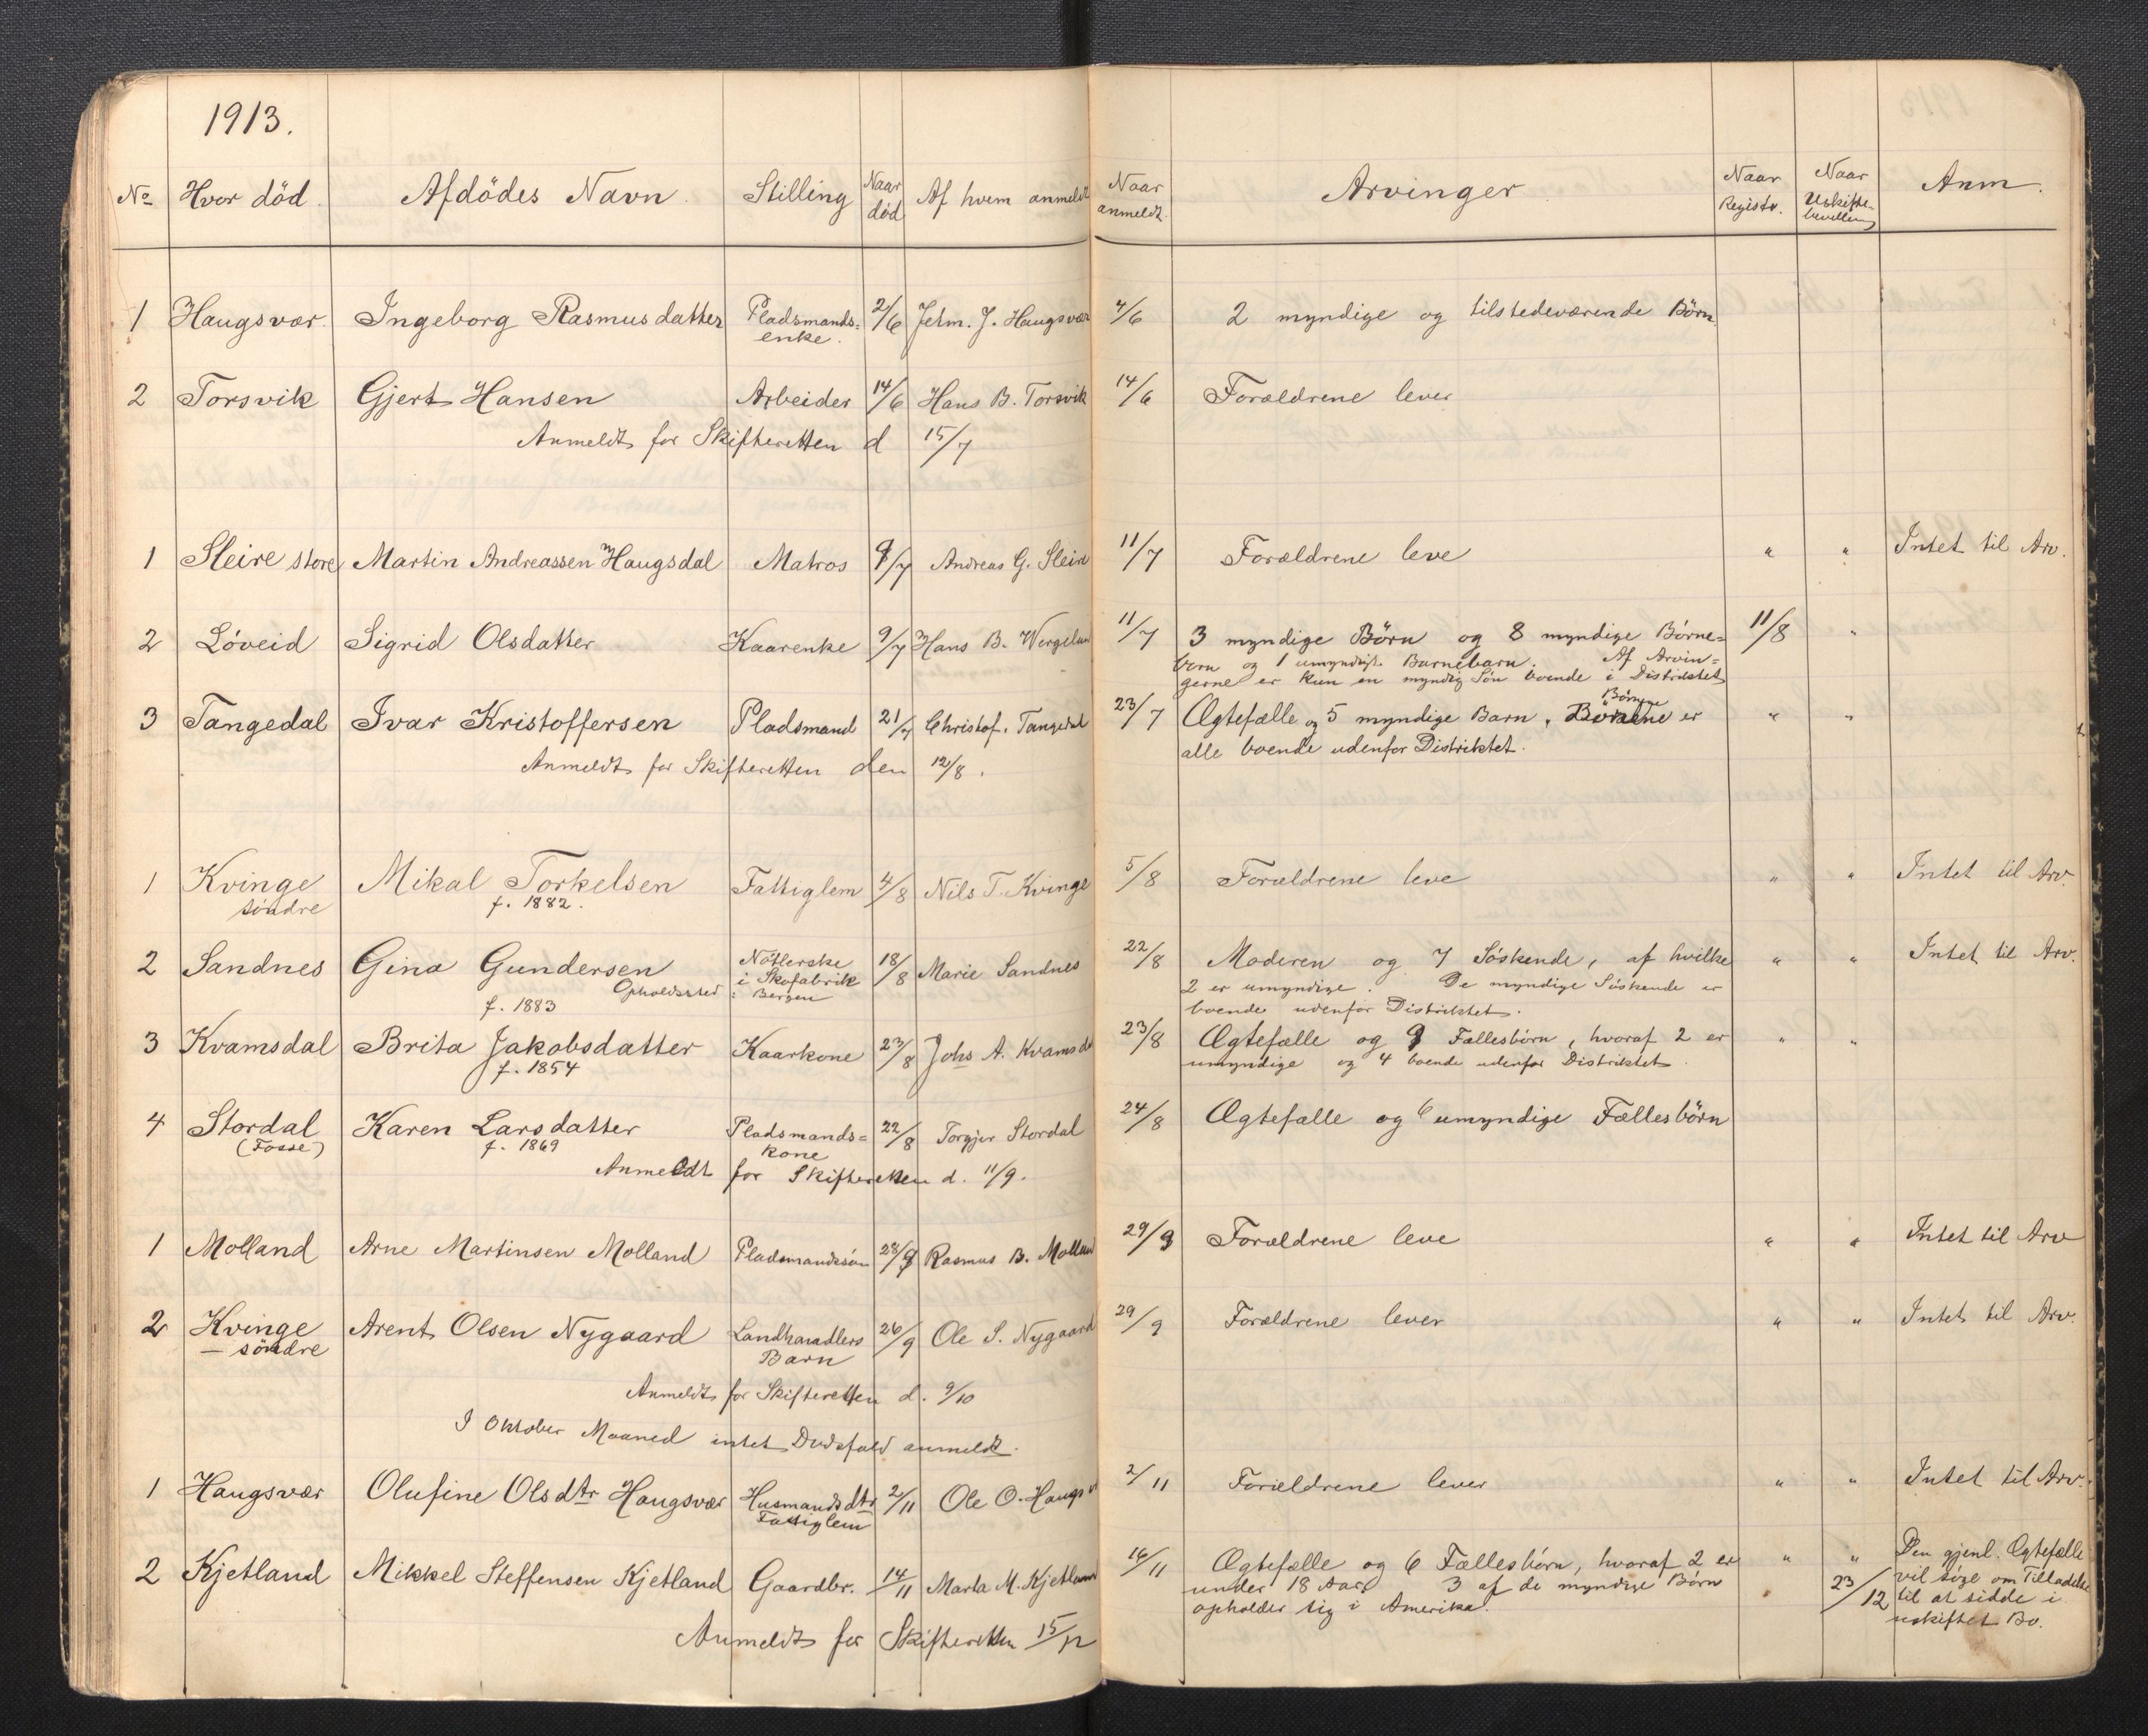 1913.
No Hvor död. Afdödes Navn. Stilling Naar död Af hvem anmeldt Naar anmeldt. Arvinger Naar Registr. Naar Uskifte-bevilling Anm.
1 Haugsvær. Ingeborg Rasmusdatter Pladsmands= 2/6 Jetm. J. Haugsvær 4/6 2 myndige og tilstedeværende Börn.
enke.
2 Torsvik Gjert Hansen Arbeider 14/6 Hans B. Torsvik 14/6 Forældrene lever
Anmeldt for Skifteretten d 15/7
1 Sleire store Martin Andreassen Haugsdal Matros 9/7 Andreas G. Sleire 11/7 Forældrene leve " " Intet til Arv.
2 Löveid Sigrid Olsdatter Kaarenke 9/7 Hans B. Wergelan 11/7 3 myndige Börn og 8 myndige Börne= 11/8 "
börn og 1 umyndigt Barnebarn. Af Arvin=
gerne er kun en myndig Sön boende i Distriktet
3 Tangedal Ivar Kristoffersen Pladsmand 21/7 Christof. Tangedal 23/7 Ægtefælle og 5 myndige Barn. Börnene er " "
Börnene
alle boende udenfor Distriktet.
Anmeldt for Skifteretten den 12/8.
1 Kvinge Mikal Torkelsen Fattiglem 4/8 Nils T. Kvinge 5/8 Forældrene leve " " Intet til Arv.
söndre f. 1882.
2 Sandnes Gina Gundersen Nåtlerske 18/8 Marie Sandnes 22/8 Moderen og 7 Söskende, af hvilke " " Intet til Arv.
Opholdssted i Skofabrik 2 er umyndige. De myndige Söskende er
f. 1883 i Bergen boende udenfor Distriktet.
3 Kvamsdal Brita Jakobsdatter Kaarkone 22/8 Johs A. Kvamsda 23/8 Ægtefælle og 9 Fællesbörn, hvoraf 2 er " "
f. 1854 umyndige og 4 boende udenfor Distriktet.
4 Stordal Karen Larsdatter Pladsmands= 22/8 Torgjer Stordal 24/8 Ægtefælle og 6 umyndige Fællesbörn
(Fosse) f. 1869 kone
Anmeldt for Skifteretten d. 11/9.
1 Molland Arne Martinsen Molland Pladsmandssön 28/9 Rasmus B. Molland 29/9 Forældrene leve " " Intet til Arv
2 Kvinge Arent Olsen Nygaard Landhandlers 26/9 Ole S. Nygaard 29/9 Forældrene lever " " Intet til Arv.
— söndre Barn
Anmeldt for Skifteretten d. 9/10
I Oktober Maaned intet Dödsfald anmeldt.
1 Haugsvær Olufine Olsdtr Haugsvær Husmandsdtr 2/11 Ole O. Haugsv 2/11 Forældrene lever " " Intet til Arv.
Fattiglem
2 Kjetland Mikkel Steffensen Kjetland Gaardbr. 14/11 Marta M. Kjetland 16/11 Ægtefælle og 6 Fællesbörn, hvoraf 2 er " " Den gjenl. Ægtefælle
under 18 Aar. 3 af de myndige Börn 23/12 vil söge om Tilladelse
opholder sig i Amerika. til at sidde i
uskiftet Bo.
Anmeldt for Skifteretten 15/12